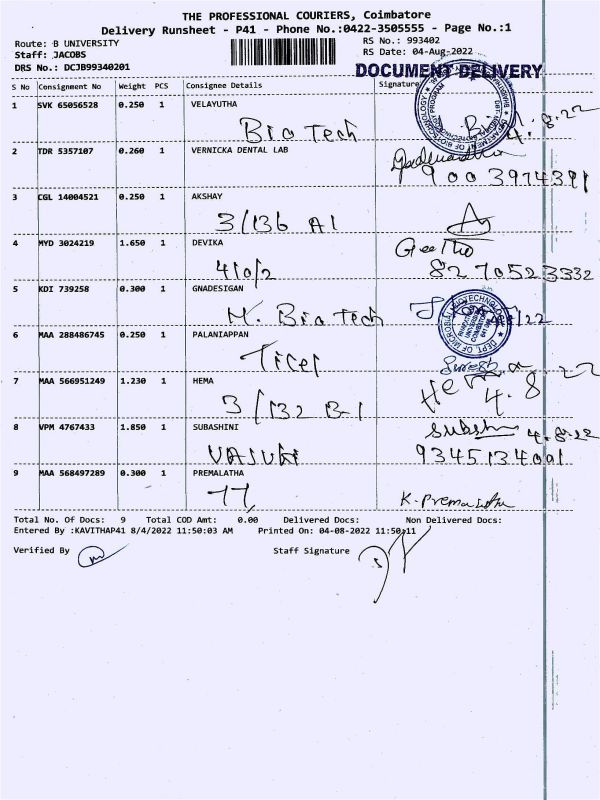 THE PROFESSIONAL COURIERS, Coimbatore
Delivery Runsheet - P41 - Phone No.:0422-3505555 - Page No.:1
Route: B UNIVERSITY RS No.: 993402
Staff: JACOBS RS Date: 04-Aug-2022
DRS No.: DCJB99340201
DOCUMENT DELIVERY
S No Consignment No Weight PCS Consignee Details Signature
1 SVK 65056528 0.250 1 VELAYUTHA
Bio Tech 4.8.22
2 TDR 5357107 0.260 1 VERNICKA DENTAL LAB
9003974391
3 CGL 14004521 0.250 1 AKSHAY
3/136 A1
4 MYD 3024219 1.650 1 DEVIKA Geetha
410/2 8270523332
5 KDI 739258 0.300 1 GNADESIGAN
M. Bio Tech
6 MAA 288486745 0.250 1 PALANIAPPAN
Ticel
7 MAA 566951249 1.230 1 HEMA
3/132 B-1 4.8.22
8 VPM 4767433 1.850 1 SUBASHINI 4.8.22
VASUKI 9345134001
9 MAA 568497289 0.300 1 PREMALATHA
77, K. Premalatha
Total No. Of Docs: 9 Total COD Amt: 0.00 Delivered Docs: Non Delivered Docs:
Entered By :KAVITHAP41 8/4/2022 11:50:03 AM Printed On: 04-08-2022 11:50:11
Verified By Staff Signature